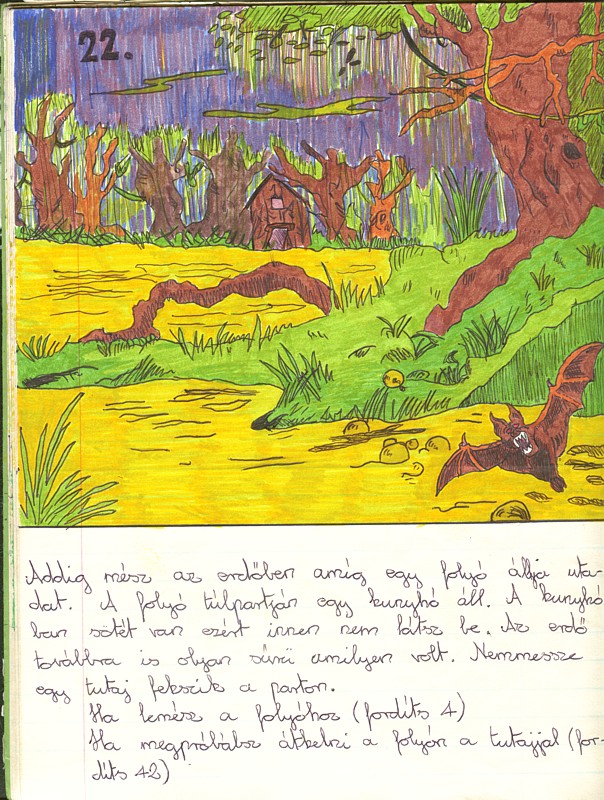 22.
Addig mész az erdőben amíg egy folyó állja uta-
dat. A folyó túlpartján egy kunyhó áll. A kunyhó
ban sötét van ezért innen nem látsz be. Az erdő
továbbra is olyan sűrű amilyen volt. Nemmessze
egy tutaj fekszik a parton.
Ha lemész a folyóhoz (fordíts 4)
Ha megpróbálsz átkelni a folyón a tutajjal (for-
díts 42)